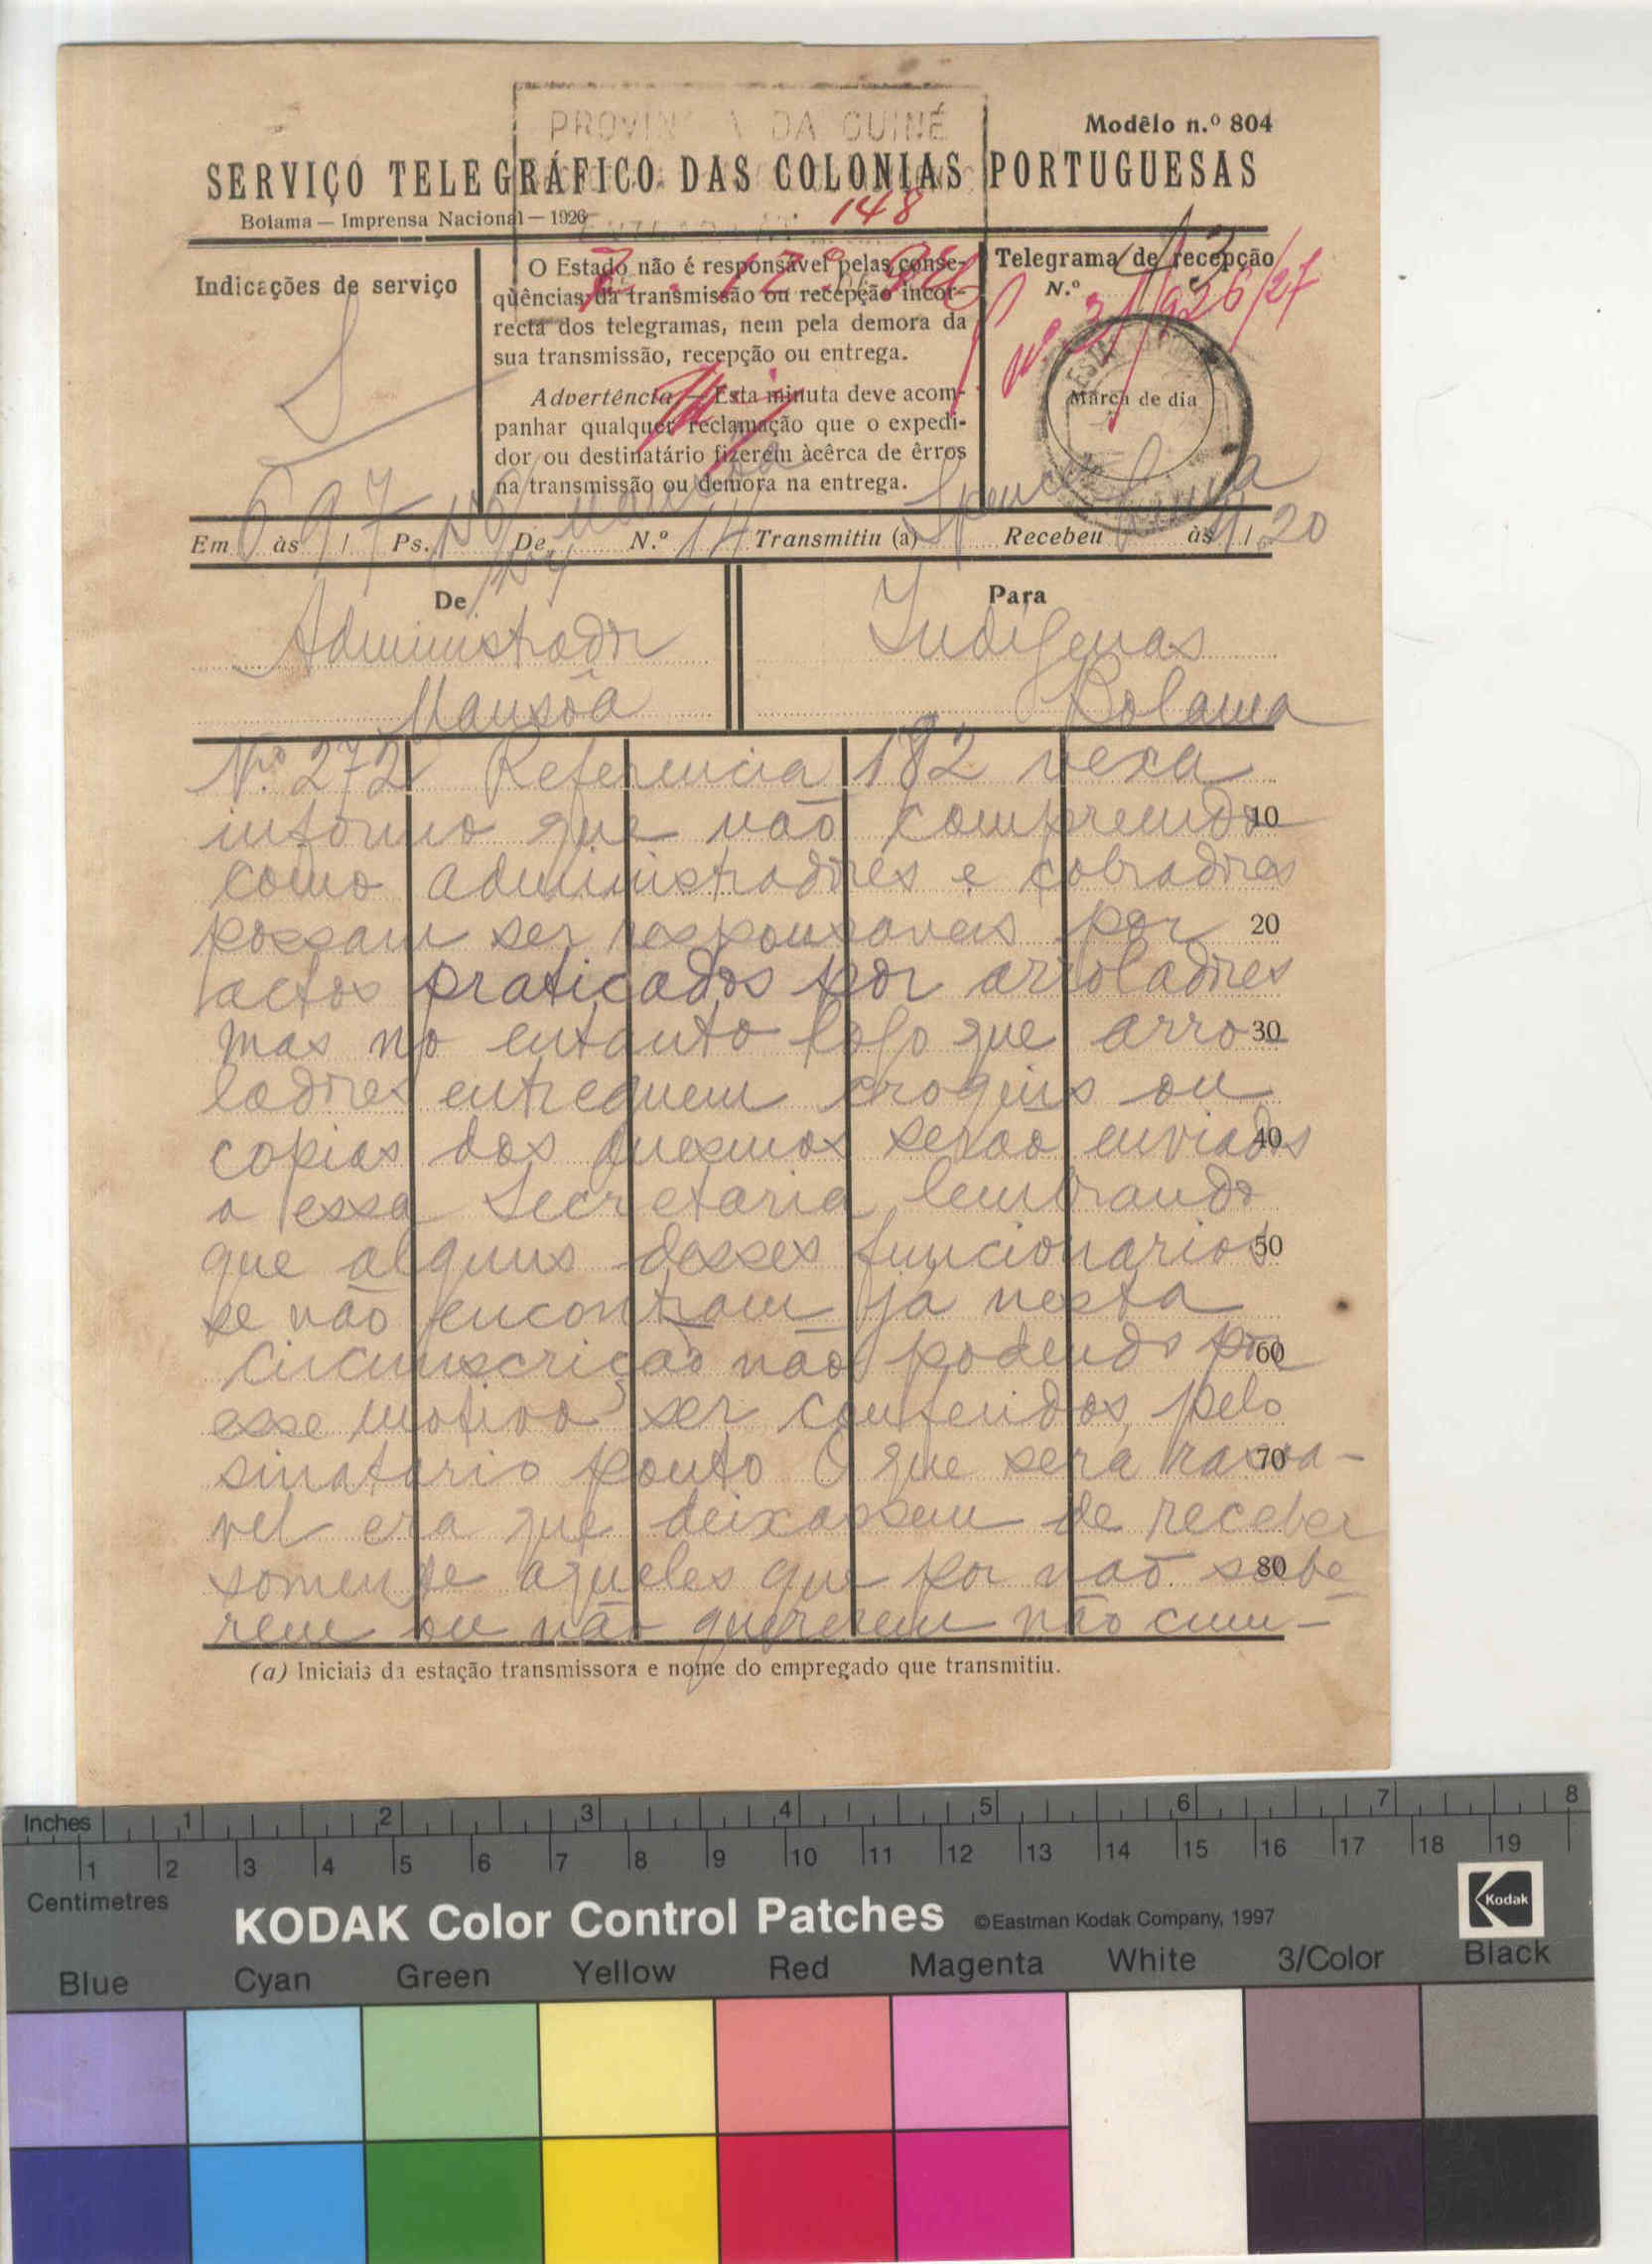 PROVIN A DA GUINÉ
Modêlo n.º 804
SERVIÇO TELEGRÁFICO DAS COLONIAS PORTUGUESAS
Bolama — Imprensa Nacional — 1926
148
Indicações de serviço
S
O Estado não é responsável pelas conse-
qüências da transmissão ou recepção incor-
recta dos telegramas, nem pela demora da
sua transmissão, recepção ou entrega.
Advertência — Esta minuta deve acom-
panhar qualquer reclamação que o expedi-
dor ou destinatário fizerem àcêrca de êrros
na transmissão ou demora na entrega.
7.12.926
Telegrama de recepção
N.º
Nº 31/926/27
Marca de dia
Em 6 às 97 Ps. De N.º 14 Transmitiu (a) Recebeu às 11.20
De
Administrador
Mansôa
Para
Indígenas
Bolama
Nº 272 Referencia 182 vexa
informo que não comprendo 10
como administradores e cobradores
possam ser responsaveis por 20
actos praticados por arroladores
mas no entanto logo que arro 30
ladores entreguem
copias dos mesmos serao enviados 40
a essa Secretaria lembrando
que alguns desses funcionarios 50
se não encontram já nesta
Circunscrição não podendo por 60
esse motivo ser pelo
sinatario ponto O que será rasoa- 70
vel era que deixassem de receber
somente aqueles que por não sabe 80
rem ou não quererem não cum-
(a) Iniciais da estação transmissora e nome do empregado que transmitiu.
Inches 1 2 3 4 5 6 7 8
1 2 3 4 5 6 7 8 9 10 11 12 13 14 15 16 17 18 19
Centimetres
KODAK Color Control Patches ©Eastman Kodak Company, 1997
Kodak
Blue Cyan Green Yellow Red Magenta White 3/Color Black